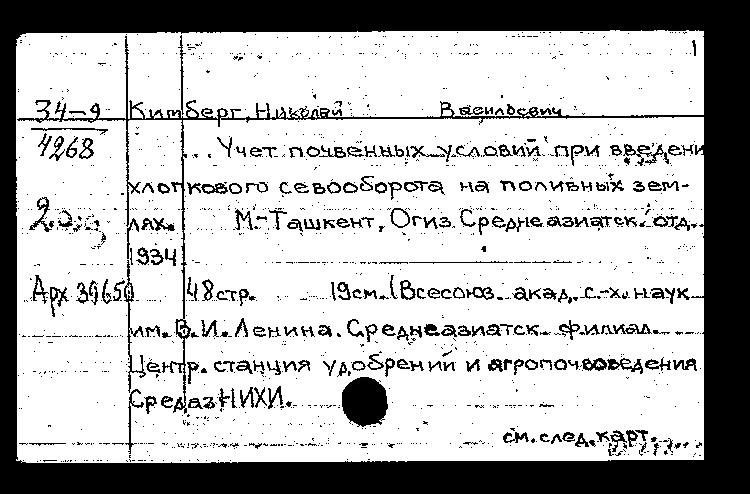 1
34-9 Кимберг, Николай Васильевич
4268 ... Учет почвенных условий при введени
хлопкового севооборота на поливных зем-
2 лях. М.-Ташкент, Огиз. Среднеазиатск. отд.
1934
Арх 39650 48 стр. 19 см. (Всесоюз. акад. с.-х. наук
им. В.И. Ленина. Среднеазиатск. филиал.
Центр. станция удобрений и агропочвоведения
СредазНИХИ.
см. след. карт.